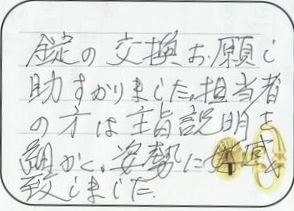 錠の交換お願いし
助すかりました。担当者
の方は主旨説明を
細かく、姿勢に
致しました